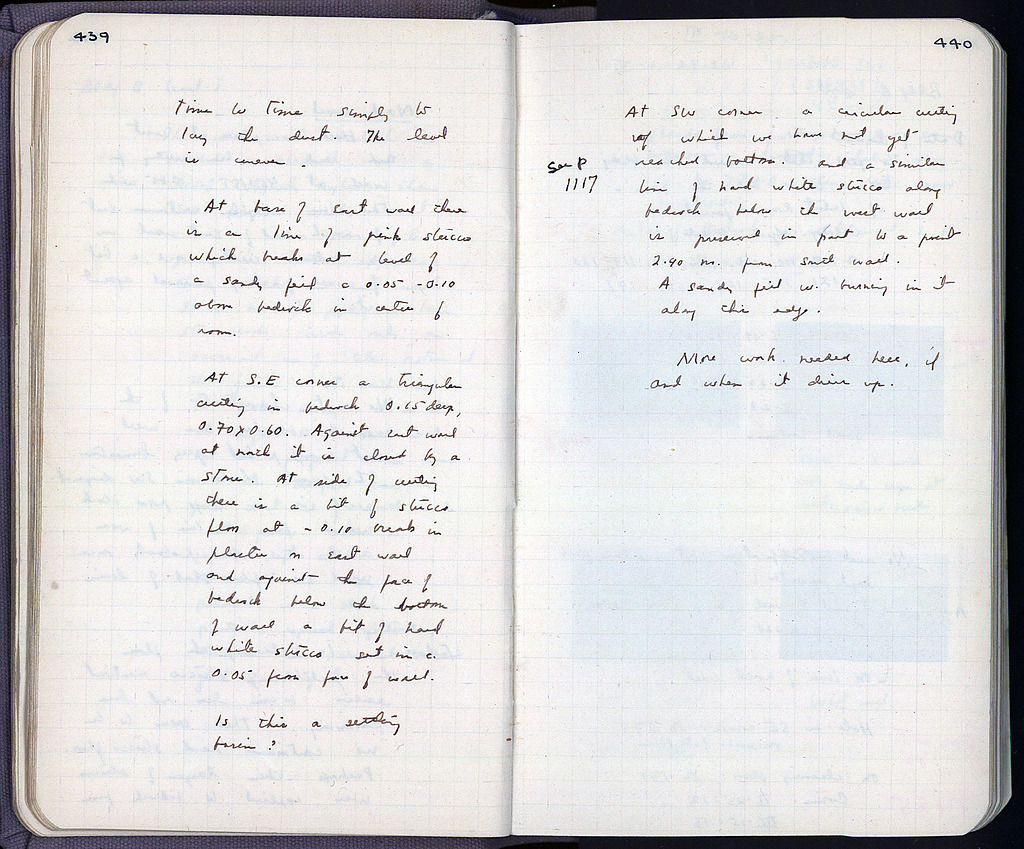 439
time to time simply to
lay the dust. The level
is uneven
At base of East wall there
is a line of pink stucco
which breaks at level of
a sandy fill c 0.05 - 0.10
above bedrock in centre of
room.
At S.E corner a triangular
cutting in bedrock 0.15 deep,
0.70 x 0.60. Against east wall
at north it is closed by a
stone. At side of cutting
there is a bit of stucco
floor at - 0.10 break in
plaster on East wall
and against the face of
bedrock below the bottom
of wall a bit of hard
white stucco set in c.
0.05 from face of wall.
Is this a settling
basin?
440
At SW corner a circular cutting
of which we have not yet
reached bottom. and a similar
See P
1117
line of hard white stucco along
bedrock below the west wall
is preserved in part to a point
2.90 m. from south wall.
A sandy fill w. burning in it
along this edge.
More work needed here, if
and when it dries up.